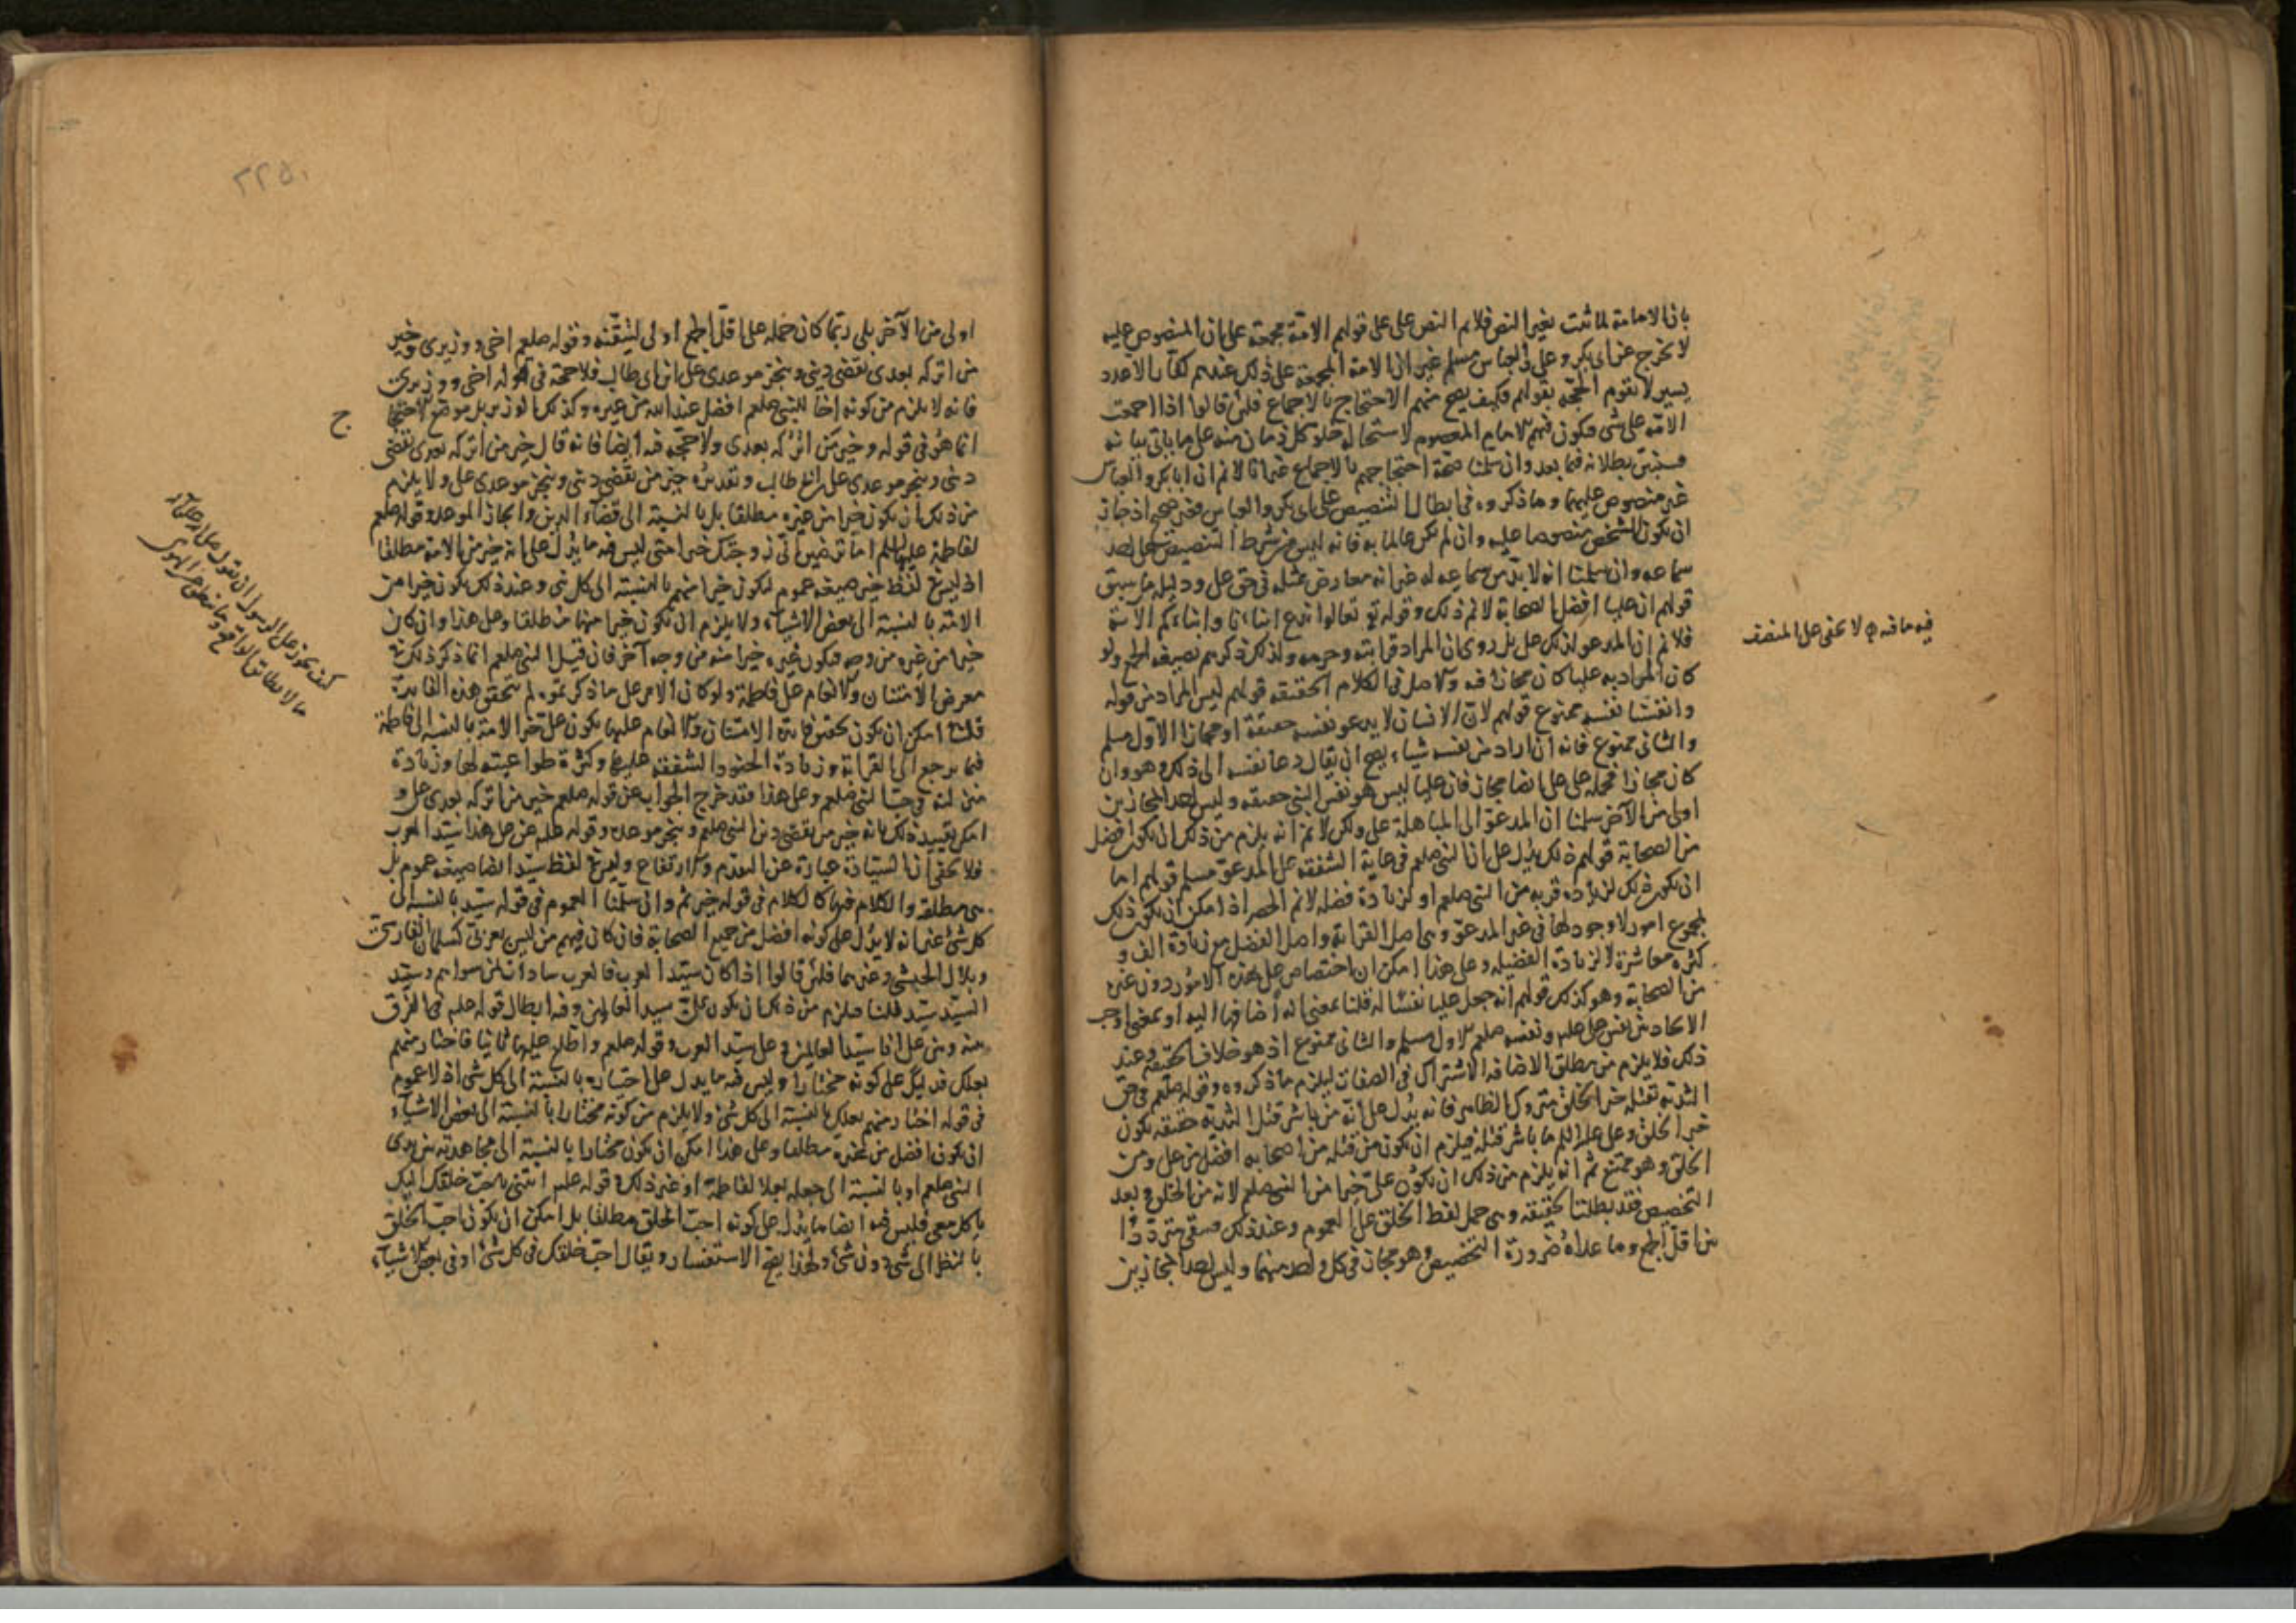 بان الامامة لما ثبت بغير النص فلانم النص على على قولهم الامة مجمعة على ان المنصوص عليه
لا يخرج عن ابى بكر وعلى والعباس مسلم غير ان الامة المجمعة على ذلك عندهم كفار الا عدد
يسير لا تقوم الحجة بقولهم فكيف يصح منهم الاحتجاج بالاجماع فلئن قالوا اذا اجمعت
الامة على شى فيكون فيهم الامام المعصوم لاستحالة خلو كل زمان منه على ما ياتى بيانه
فسنبين بطلانه فيما بعد وان سلمنا صحة احتجاجهم بالاجماع غير انا لا نم ان ابا بكر والعباس
غير منصوص عليهما وما ذكروه فى ابطال التنصيص على ابى بكر والعباس فغير صحيح اذ جاز
ان يكون الشخص منصوصا عليه وان لم يكن عالما به فانه ليس من شرط التنصيص على احد
سماعه وان سلمنا انه لا بد من سماعه له غير انه معارض بمثله فى حق على ودليله ما سبق
قولهم ان عليا افضل الصحابة لا نم ذلك وقوله تع تعالوا ندع ابناءنا وابناءكم الاية
فلا نم ان المدعو لذلك على بل روى ان المراد قرابته وحرمه ولذلك ذكرهم بصيغة الجمع ولو
كان المراد به عليا كان مجازا فيه والاصل فى الكلام الحقيقة قولهم ليس المراد من قوله
وانفسنا نفسه ممنوع قولهم لان الانسان لا يدعو نفسه حقيقة او مجازا الاول مسلم
والثانى ممنوع فانه ان اراد من نفسه شياء يصح ان يقال دعا نفسه الى ذلك وهو وان
كان مجازا فحمله على على ايضا مجاز فان عليا ليس هو نفس النبى حقيقة وليس احد المجازين
اولى من الآخر سلمنا ان المدعو الى المباهلة على ولكن لا نم انه يلزم من ذلك ان يكون افضل
من الصحابة قولهم ذلك يدل على ان النبى صلعم فى غاية الشفقة على المدعو مسلم قولهم اما
ان يكون ذلك لزيادة قربه من النبى صلعم او لزيادة فضله لا نم الحصر اذ امكن ان يكون ذلك
لمجموع امور لا وجود لها فى غير المدعو وهى اصل القرابة واصل الفضل مع زيادة الف و
كثرة معاشرة لا لزيادة الفضيلة وعلى هذا امكن ان اختصاص على بهذه الامور دون غيره
من الصحابة وهو كذلك قولهم انه جعل عليا نفسا له قلنا بمعنى انه اضافها اليه او بمعنى اوجب
الاتحاد بين نفس على ونفسه صلعم الاول مسلم والثانى ممنوع اذ هو خلاف الحقيقة وعند
ذلك فلا يلزم من مطلق الاضافة الاشتراك فى الصفات ليلزم ما ذكروه وقوله صلعم فى حق
الثدية تقتله خير الخلق متروك الظاهر فانه يدل على انه من باشر قتل ذا الثدية حقيقة يكون
خير الخلق وعلى عليه السلم ما باشر قتله فيلزم ان يكون من قتله من اصحابه افضل من على ومن
الخلق وهو ممتنع ثم انه يلزم من ذلك ان يكون على خيرا من النبى صلعم لانه من الخلق وبعد
التخصيص فقد بطلت الحقيقة وهى حمل لفظ الخلق على العموم وعند ذلك فيبقى مترددا
بين اقل الجمع وما عداه ضرورة التخصيص وهو مجاز فى كل واحد منهما وليس احد المجازين
فيه ما فيه لا يخفى على المنصف
٢٢٥
اولى من الآخر بلى ربما كان حمله على اقل الجمع اولى لتيقنه وقوله صلعم اخى ووزيرى وخير
من اتركه بعدى يقضى دينى وينجز موعدى على ابن ابى طالب فلا حجة فى قوله اخى ووزيرى
فانه لا يلزم من كونه اخا للنبى صلعم افضل عند الله من غيره وكذلك الوزير بل موضع الاحتجاج
انما هو فى قوله وخير من اتركه بعدى ولا حجة فيه ايضا فانه قال خير من اتركه بعدى يقضى
دينى وينجز موعدى على بن ابى طالب وتقديره خير من يقضى دينى وينجز موعدى على ولا يلزم
من ذلك ان يكون خيرا من غيره مطلقا بل بالنسبة الى قضاء الدين وانجاز الموعد وقوله صلعم
لفاطمة عليها السلم اما ترضين انى زوجتك خير امتى ليس فيه ما يدل على انه خير من الامة مطلقا
اذ ليس فى لفظ خير صيغة عموم ليكون خيرا منهم بالنسبة الى كل شى وعند ذلك يكون خيرا من
الامة بالنسبة الى بعض الاشياء ولا يلزم ان يكون خيرا منها مطلقا وعلى هذا وان كان
خيرا من غيره من وجه فيكون غيره خيرا منه من وجه آخر فان قيل النبى صلعم انما ذكر ذلك فى
معرض الامتنان والانعام على فاطمة ولو كان الامر على ما ذكرتموه لم تتحقق هذه الفايدة
قلنا امكن ان يكون تحقق فايدة الامتنان والانعام عليها يكون على خير الامة بالنسبة الى فاطمة
فيما يرجع الى القرابة وزيادة الحنو والشفقة عليها وكثرة طواعيته لها وزيادة
وعلى هذا فقد خرج الجواب عن قوله صلعم خير من اتركه بعدى على و
امكن تقييد ذلك بانه خير من يقضى دين النبى صلعم وينجز موعده وقوله صلعم عن على هذا سيد العرب
فلا يخفى ان السيادة عبارة عن التقدم والارتفاع وليس فى لفظ سيد ايضا صيغة عموم بل
هى مطلقة والكلام فيها كالكلام فى قوله خير ثم وان سلمنا العموم فى قوله سيد بالنسبة الى
كل شى غير انه لا يدل على كونه افضل من جميع الصحابة فان كان فيهم من ليس بعربى كسلمان الفارسى
وبلال الحبشى وغيرهما فلئن قالوا اذا كان سيد العرب فالعرب سادات لمن سواهم وسيد
السيد سيد قلنا فيلزم من ذلك ان يكون على سيد العالمين وفيه ابطال قوله صلعم فى الفرق
بينه وبين على انا سيد العالمين وعلى سيد العرب وقوله صلعم واطلع عليها ثانيا فاختار منهم
بعلك فدليل على كونه مختارا وليس فيه ما يدل على اختياره بالنسبة الى كل شى اذ لا عموم
فى قوله اختار منهم بعلك بالنسبة الى كل شى ولا يلزم من كونه مختارا بالنسبة الى بعض الاشياء
ان يكون افضل من غيره مطلقا وعلى هذا امكن ان يكون مختارا بالنسبة الى مجاهدته بين يدى
النبى صلعم او بالنسبة الى جعله بعلا لفاطمة او غير ذلك وقوله صلعم ائتنى باحب خلقك اليك
ياكل معى فليس فيه ايضا ما يدل على كونه احب الخلق مطلقا بل امكن ان يكون احب الخلق
بالنظر الى شى دون شى ولهذا يصح الاستفسار ويقال احب خلقك فى كل شى او فى بعض الاشياء
ج
كيف يجوز على الرسول ان يقول
ما لا يطابق الواقع وما ينطق عن الهوى